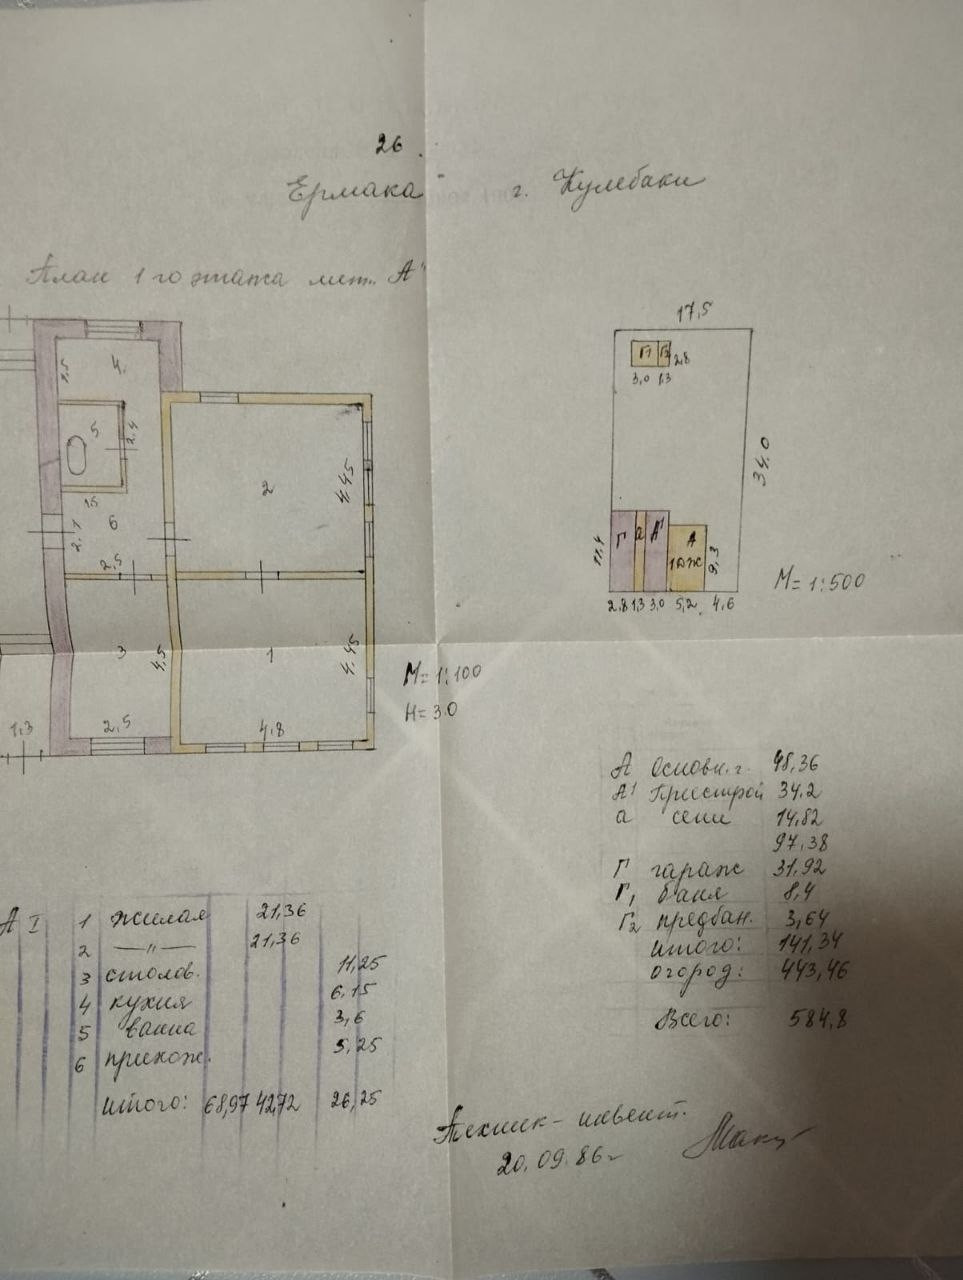 26.
Ермака г. Кулебаки
План 1го этажа лит. А'
17,5
Г1 Г2 2,8
3,0 1,3
34,0
11,4 Г а А' А 9,3
1эж
2,8 1,3 3,0 5,2 4,6
М=1:500
1,5 4.
5 2,4
1,5
2,1 6
2,5
2 4,45
3 4,5
1 4,45
1,3 2,5 4,8
М=1:100
Н=3.0
А основн. г. 48,36
А1 Пристрой 34,2
а сени 14,82
97,38
Г гараж 31,92
Г1 баня 8,4
Г2 предбан. 3,64
итого: 141,34
огород: 443,46
Всего: 584,8
А I 1 жилая 21,36
2 —"— 21,36
3 столов. 11,25
4 кухня 6,15
5 ванна 3,6
6 прихож. 5,25
итого: 68,97 42,72 26,25
Техник-инвент.
20.09.86г